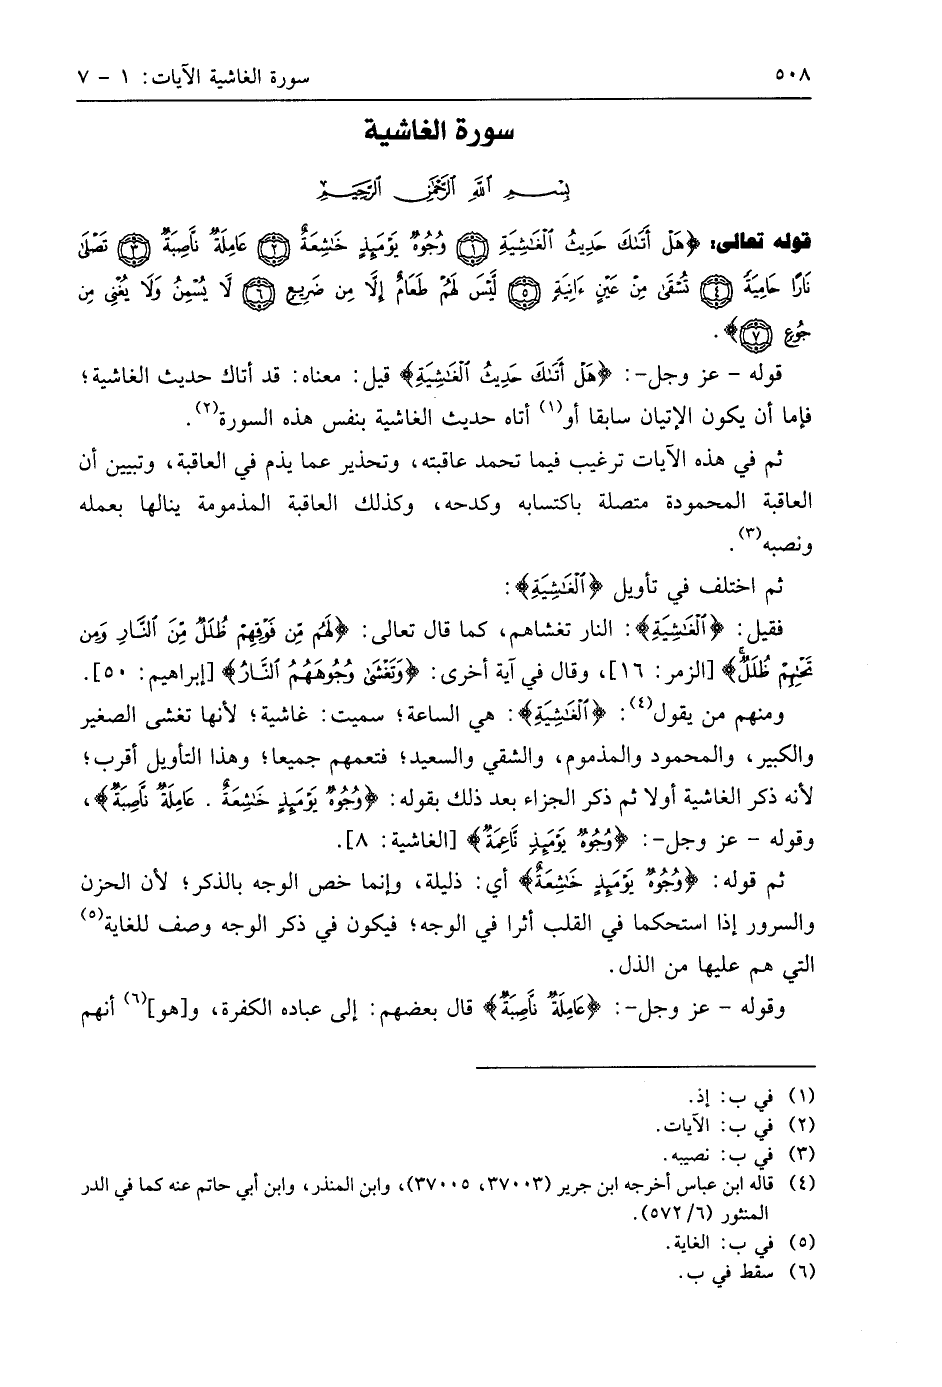 ٥٠٨ سورة الغاشية الآيات: ١ - ٧
سورة الغاشية
بِسْمِ اللَّهِ الرَّحْمَٰنِ الرَّحِيمِ
قوله تعالى: ﴿هَلْ أَتَىٰكَ حَدِيثُ ٱلْغَٰشِيَةِ ۝١ وُجُوهٌ يَوْمَئِذٍ خَٰشِعَةٌ ۝٢ عَامِلَةٌ نَّاصِبَةٌ ۝٣ تَصْلَىٰ
نَارًا حَامِيَةً ۝٤ تُسْقَىٰ مِنْ عَيْنٍ ءَانِيَةٍ ۝٥ لَّيْسَ لَهُمْ طَعَامٌ إِلَّا مِن ضَرِيعٍ ۝٦ لَّا يُسْمِنُ وَلَا يُغْنِى مِن
جُوعٍ ۝٧﴾.
قوله - عز وجل-: ﴿هَلْ أَتَىٰكَ حَدِيثُ ٱلْغَٰشِيَةِ﴾ قيل: معناه: قد أتاك حديث الغاشية؛
فإما أن يكون الإتيان سابقا أو(١) أتاه حديث الغاشية بنفس هذه السورة(٢).
ثم في هذه الآيات ترغيب فيما تحمد عاقبته، وتحذير عما يذم في العاقبة، وتبيين أن
العاقبة المحمودة متصلة باكتسابه وكدحه، وكذلك العاقبة المذمومة ينالها بعمله
ونصبه(٣).
ثم اختلف في تأويل ﴿ٱلْغَٰشِيَةِ﴾:
فقيل: ﴿ٱلْغَٰشِيَةِ﴾: النار تغشاهم، كما قال تعالى: ﴿لَهُم مِّن فَوْقِهِمْ ظُلَلٌ مِّنَ ٱلنَّارِ وَمِن
تَحْتِهِمْ ظُلَلٌ﴾ [الزمر: ١٦]، وقال في آية أخرى: ﴿وَتَغْشَىٰ وُجُوهَهُمُ ٱلنَّارُ﴾ [إبراهيم: ٥٠].
ومنهم من يقول(٤): ﴿ٱلْغَٰشِيَةِ﴾: هي الساعة؛ سميت: غاشية؛ لأنها تغشى الصغير
والكبير، والمحمود والمذموم، والشقي والسعيد؛ فتعمهم جميعا؛ وهذا التأويل أقرب؛
لأنه ذكر الغاشية أولا ثم ذكر الجزاء بعد ذلك بقوله: ﴿وُجُوهٌ يَوْمَئِذٍ خَٰشِعَةٌ . عَامِلَةٌ نَّاصِبَةٌ﴾،
وقوله - عز وجل-: ﴿وُجُوهٌ يَوْمَئِذٍ نَّاعِمَةٌ﴾ [الغاشية: ٨].
ثم قوله: ﴿وُجُوهٌ يَوْمَئِذٍ خَٰشِعَةٌ﴾ أي: ذليلة، وإنما خص الوجه بالذكر؛ لأن الحزن
والسرور إذا استحكما في القلب أثرا في الوجه؛ فيكون في ذكر الوجه وصف للغاية(٥)
التي هم عليها من الذل.
وقوله - عز وجل-: ﴿عَامِلَةٌ نَّاصِبَةٌ﴾ قال بعضهم: إلى عباده الكفرة، و[هو](٦) أنهم
(١) في ب: إذ.
(٢) في ب: الآيات.
(٣) في ب: نصيبه.
(٤) قاله ابن عباس أخرجه ابن جرير (٣٧٠٠٣، ٣٧٠٠٥)، وابن المنذر، وابن أبي حاتم عنه كما في الدر
المنثور (٥٧٢/٦).
(٥) في ب: الغاية.
(٦) سقط في ب.